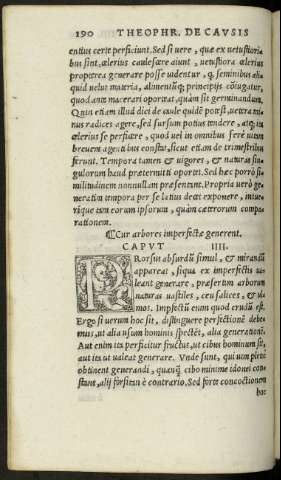 190 THEOPHR. DE CAVSIS
entius certe perficiunt. Sed si uere, quæ ex uetustiori=
bus sint, celerius coalescere aiunt, uetustiora celerius
propterea generare posse uidentur, q, seminibus ali=
quid uelut materia, alimentúq; principijs coniugatur,
quod antè macerari oporteat, quàm sit germinandum.
Quin etiam illud dici de caule quidē potest, uetera mi=
nus radices agere, sed sursum potius tendere, atq; ita
celerius se perficere, quod uel in omnibus ferè uitam
breuem agentibus constat, sicut etiam de trimestribus
ferunt. Tempora tamen & uigores, & naturas sin=
gulorum haud prætermitti oportet. Sed hæc porrò si=
militudinem nonnullam præsentant. Propria uerò ge=
neratim tempora per se latius decet exponere, mitu=
rique tum eorum ipsorum, quàm cæterorum compa=
rationem.
Cur arbores imperfectæ generent.
CAPVT IIII.
PRorsus absurdū simul, & mirandū
appareat, siqua ex imperfectis ua=
leant generare, præsertim arborum
naturas uastiles, ceu salices, & ul=
mos. Imperfectū enim quod crudū est.
Ergo si uerum hoc sit, distinguere perfectionē debe=
mus, ut alia usum hominis spectēt, alia generationē.
Aut enim ita perficitur fructus, ut cibus hominum sit,
aut ita ut ualeat generare. Vnde sunt, qui uim plenē
obtinent generandi, quanq̄ cibo minime idonei con=
stant, alij forsitan è contrario. Sed forte concoctionem
hac